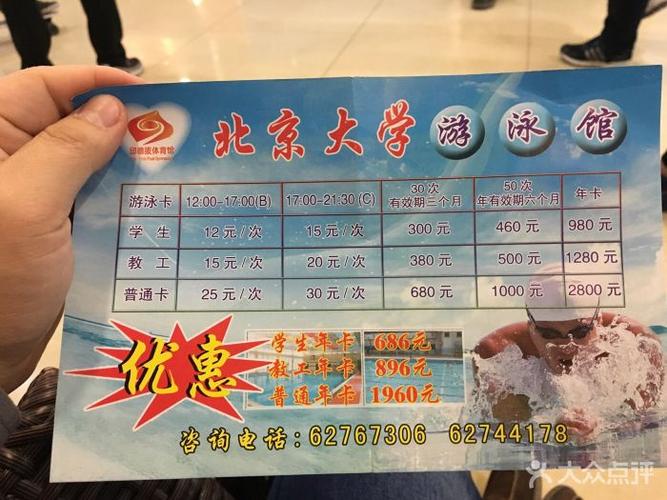 北京大学游泳馆
邱德拔体育馆
游泳卡 12:00-17:00(B) 17:00-21:30(C) 30次 有效期三个月 50次 年有效期六个月 年卡
学生 12元/次 15元/次 300元 460元 980元
教工 15元/次 20元/次 380元 500元 1280元
普通卡 25元/次 30元/次 680元 1000元 2800元
优惠
学生年卡 686元
教工年卡 896元
普通年卡 1960元
咨询电话:62767306 62744178
大众点评